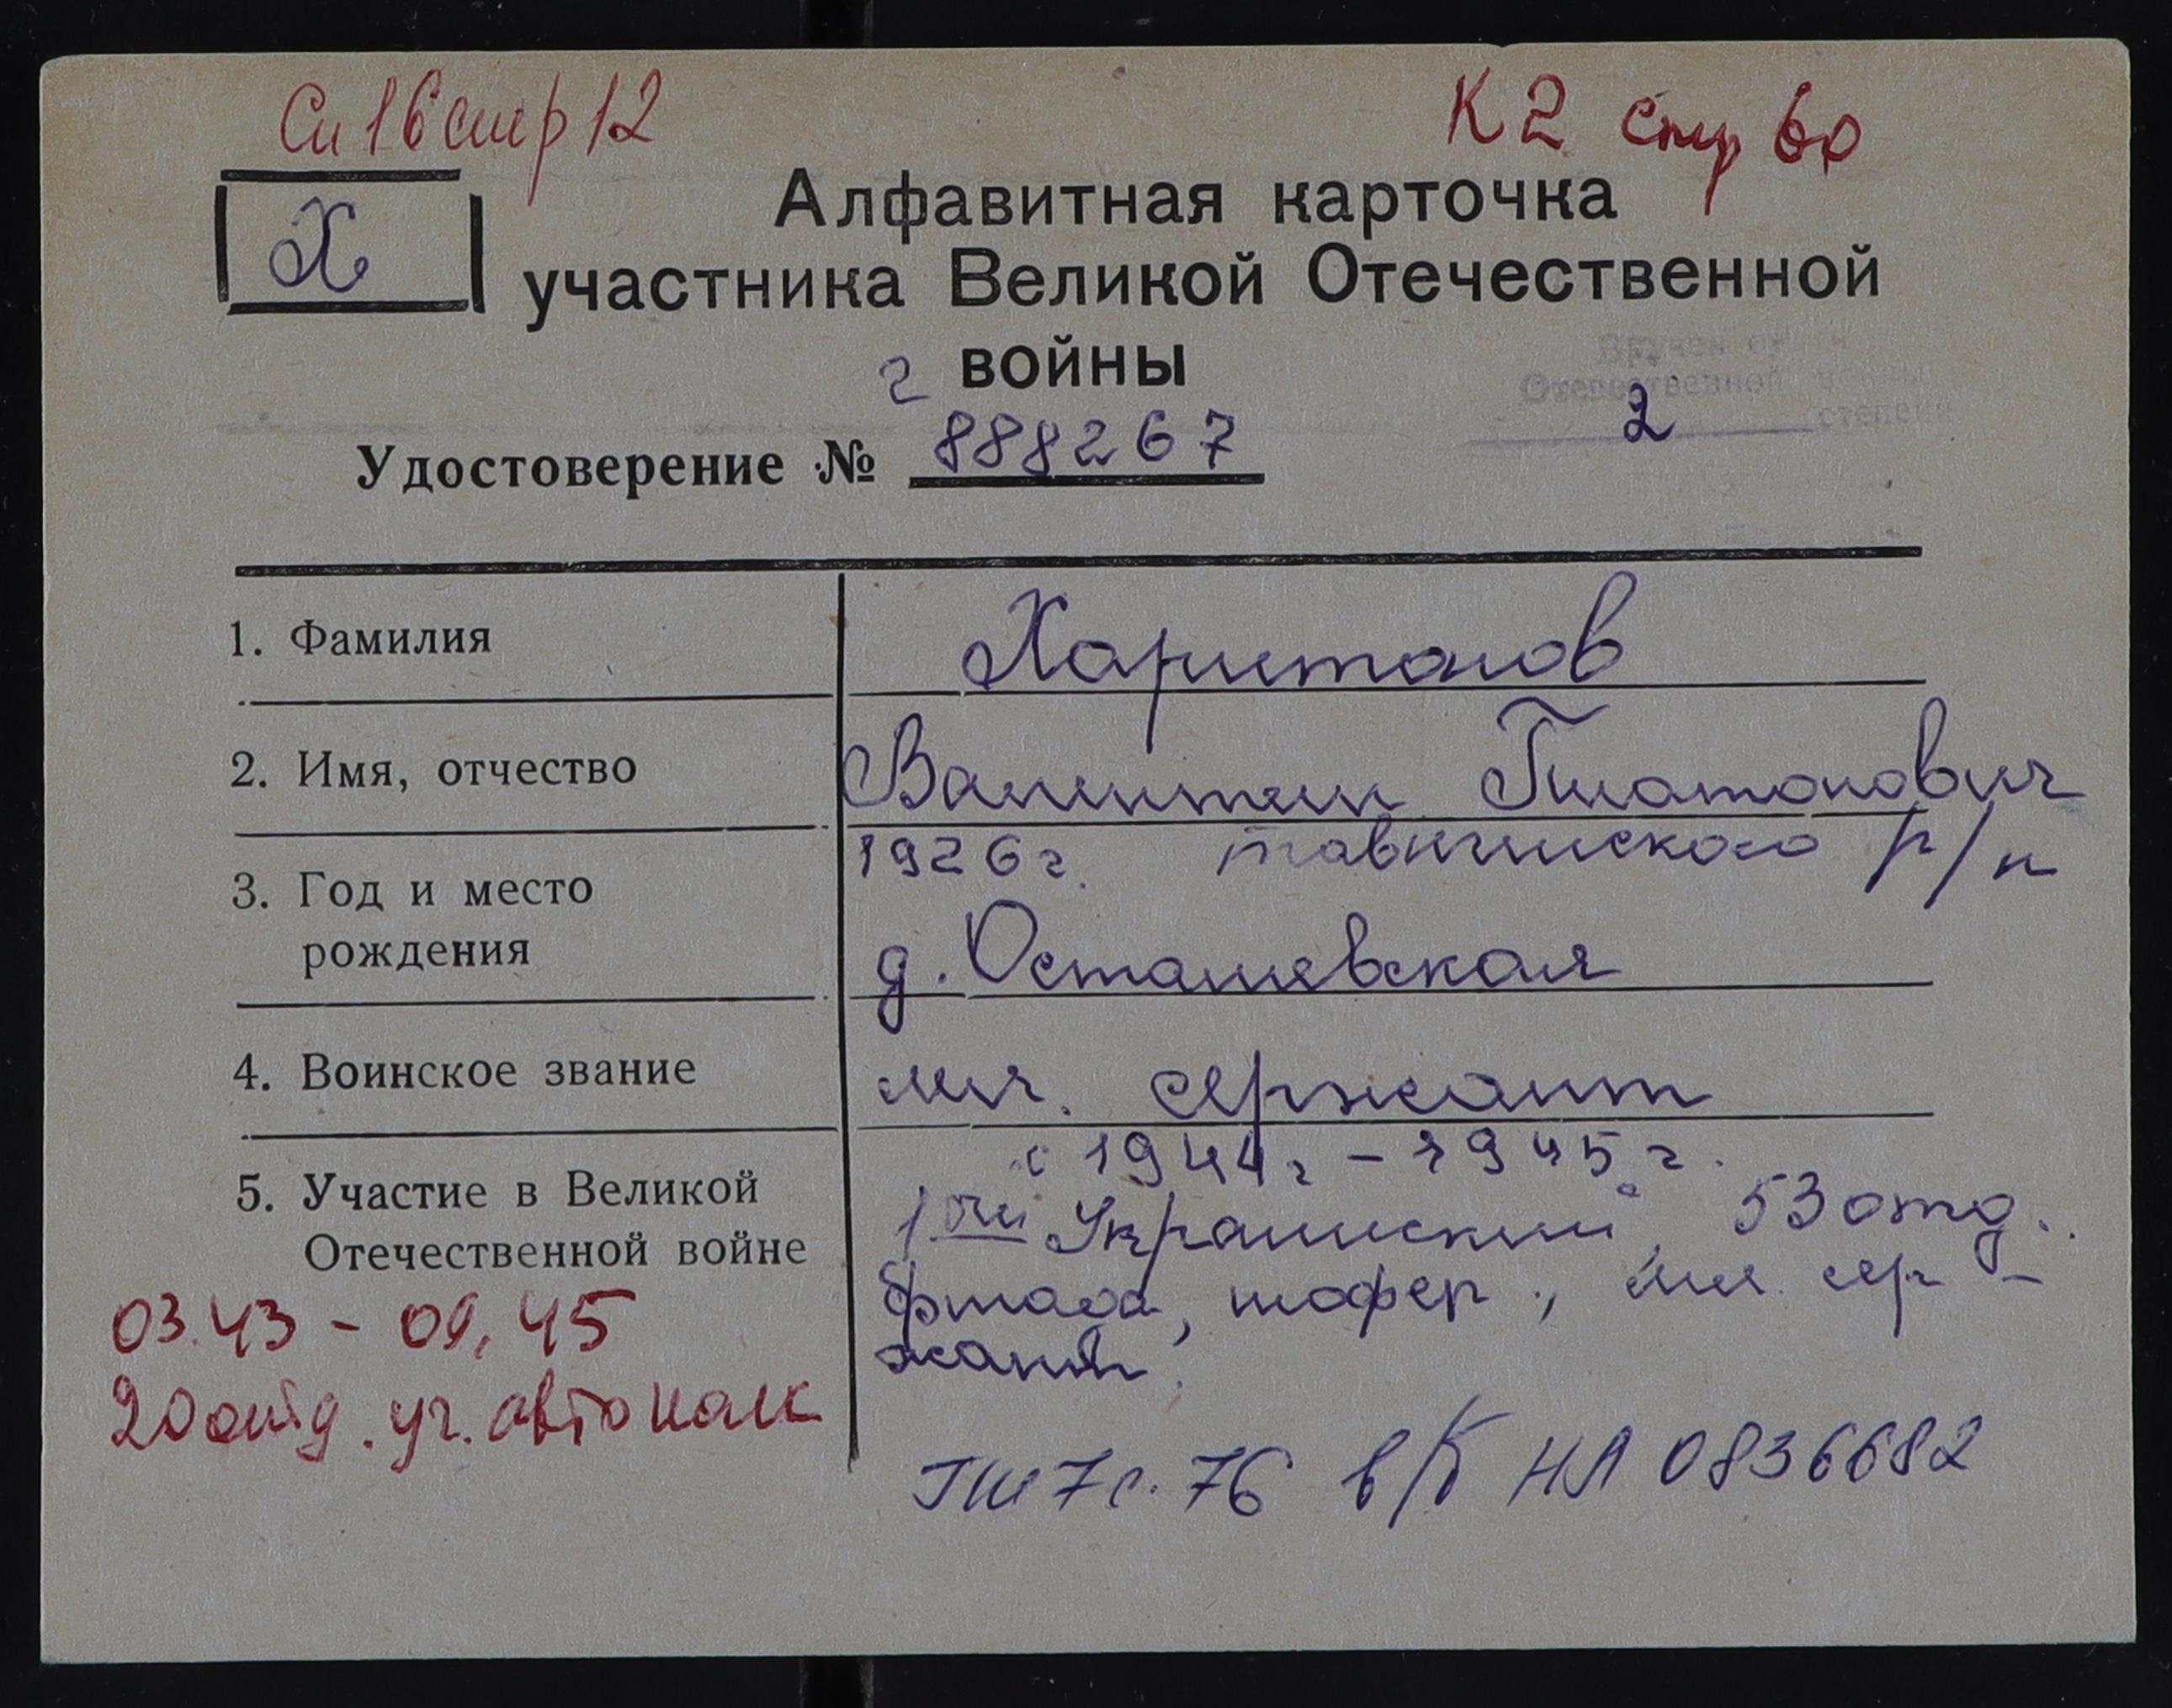 Сп 16 стр 12
К 2 стр 60
Х
Алфавитная карточка
участника Великой Отечественной
войны
Г
Отечественной войны
2 степени
Удостоверение № 888267
1. Фамилия Харитонов
2. Имя, отчество Валентин Платонович
3. Год и место рождения 1926г. Тавричиского р/н
д. Осташевская
4. Воинское звание мл. сержант
5. Участие в Великой Отечественной войне с 1944г – 1945г.
1ый Украинский, 53 отд.
бригада, шофер, мл. сер-
жант.
03.43 – 09.45
20 отд. уч. автополк
ГШ 7 с. 76 в/б НЛ 0836682